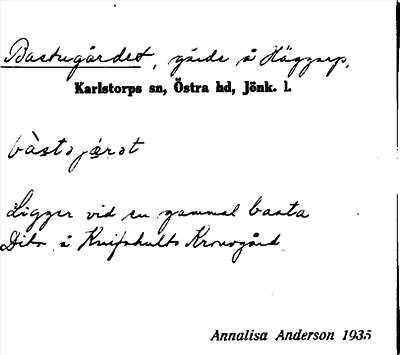 Bastugärdet, gärde å Häggarp,
Karlstorps sn, Östra hd, Jönk. l.
bàstəjǽrət
Ligger vid en gammal basta
Dito å Knifshults Kronogård
Annalisa Anderson 1935